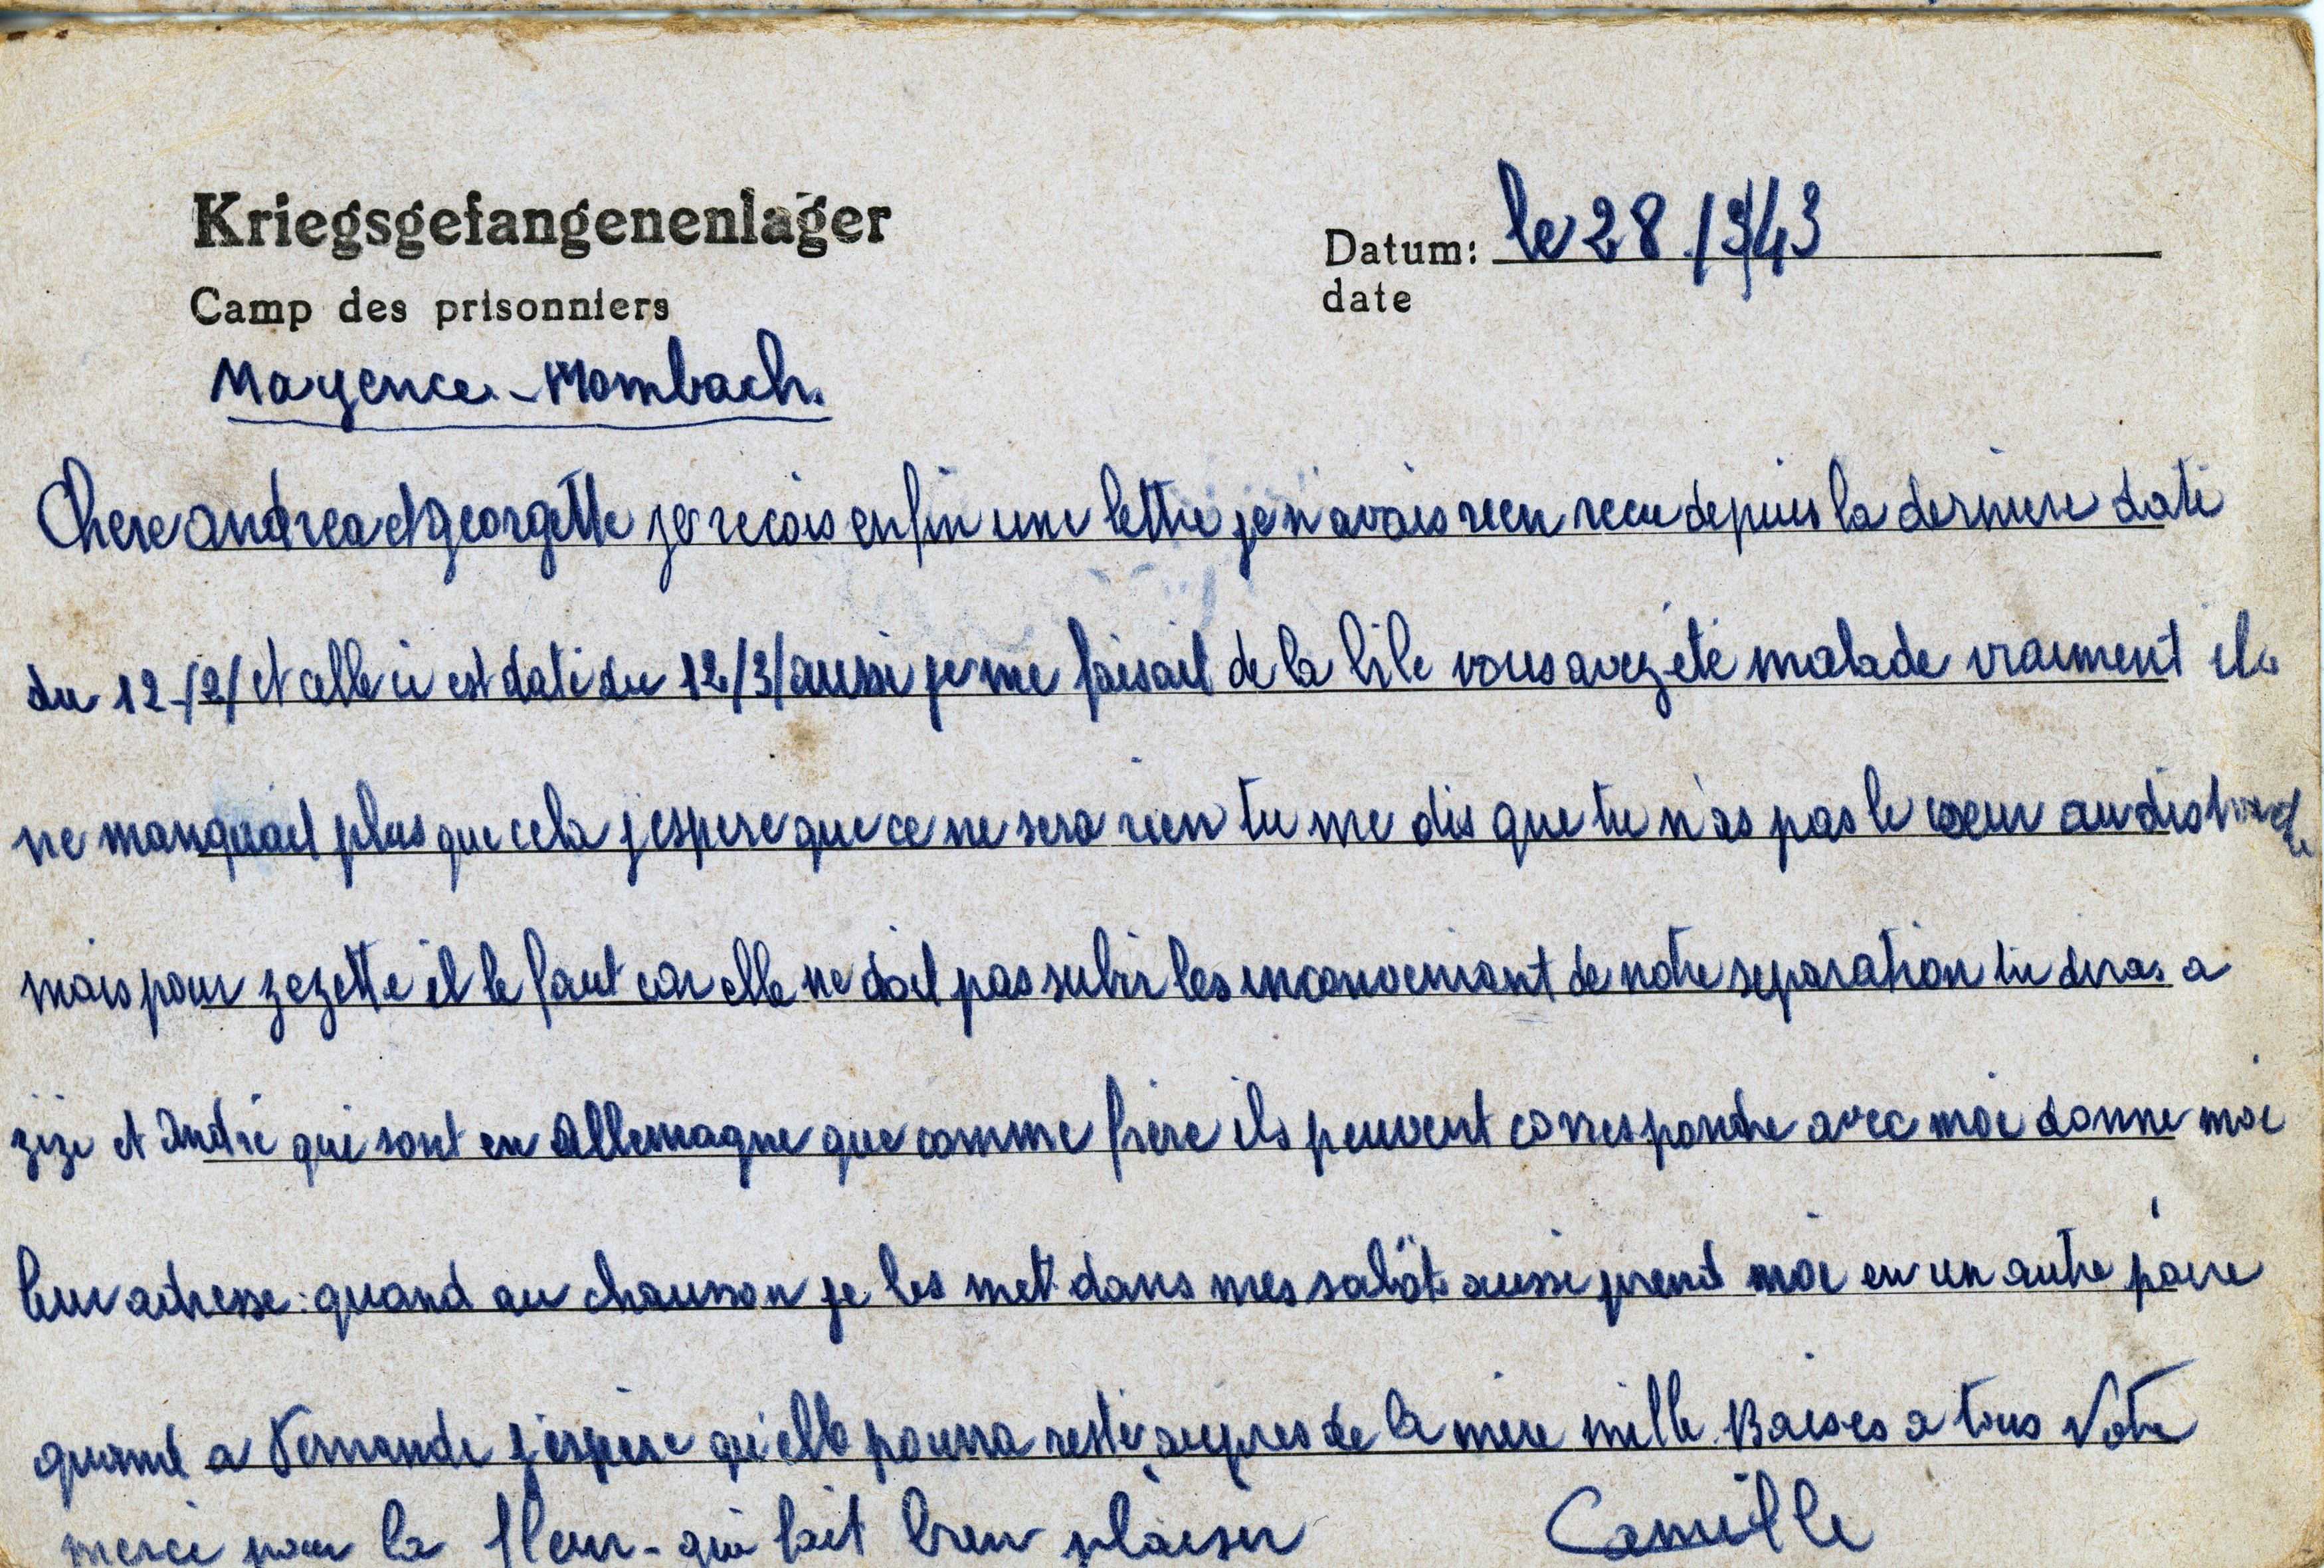 Kriegsgefangenenlager
Camp des prisonniers
Datum: le 28/3/43
date
Mayence-Mombach.
Chere andrea et georgette je recois enfin une lettre je n'avais rien recu depuis la derniere daté
du 12/2/ et celle ci est daté du 12/3/ aussi je me faisait de la bile vous avez été malade vraiment il
ne manquait plus que cela j'espere que ce ne sera rien tu me dis que tu n'as pas le coeur au distraction
mais pour zezette il le faut car elle ne doit pas subir les inconveniant de notre separation tu diras a
zizi et André qui sont en Allemagne que comme frère ils peuvent correspondre avec moi donne moi
leur adresse: quand au chausson je les met dans mes sabots aussi prend moi en un autre paire
quand a Fernande j'espère qu'elle pourra resté aupres de la mère mille Baises a tous Votre
merci pour la fleur - qui fait bien plaisir Camille